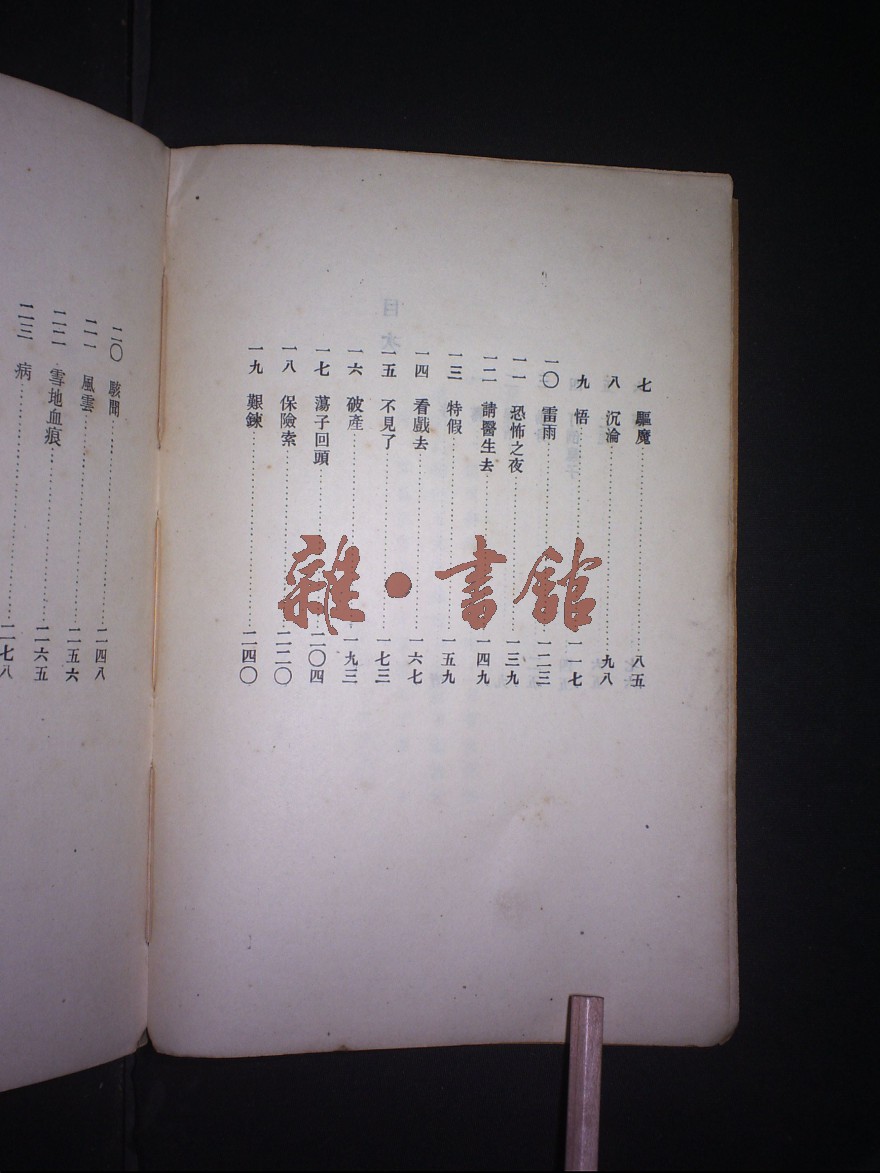 七　驅魔……八五
八　沉淪……九八
九　悟……一一七
一〇　雷雨……一二三
一一　恐怖之夜……一三九
一二　請醫生去……一四九
一三　特假……一五九
一四　看戲去……一六七
一五　不見了……一七三
一六　破產……一九三
一七　蕩子回頭……二〇四
一八　保險索……二二〇
一九　艱鍊……二四〇
二〇　駭聞……二四八
二一　風雲……二五六
二二　雪地血痕……二六五
二三　病……二七八
雜·書館